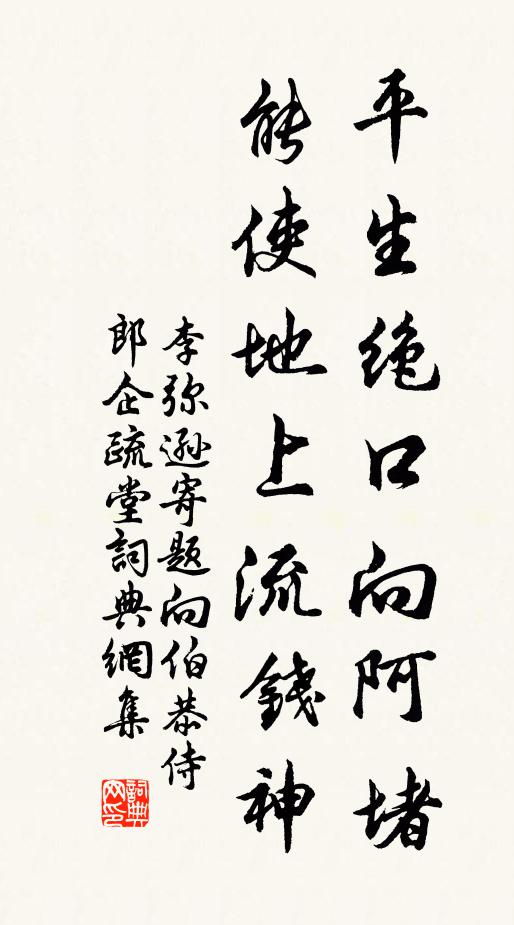 平生絶口向阿堵
能使地上流錢神
李弥遜寄題向伯恭侍
郎企疏堂詞典網集
詞典
网印